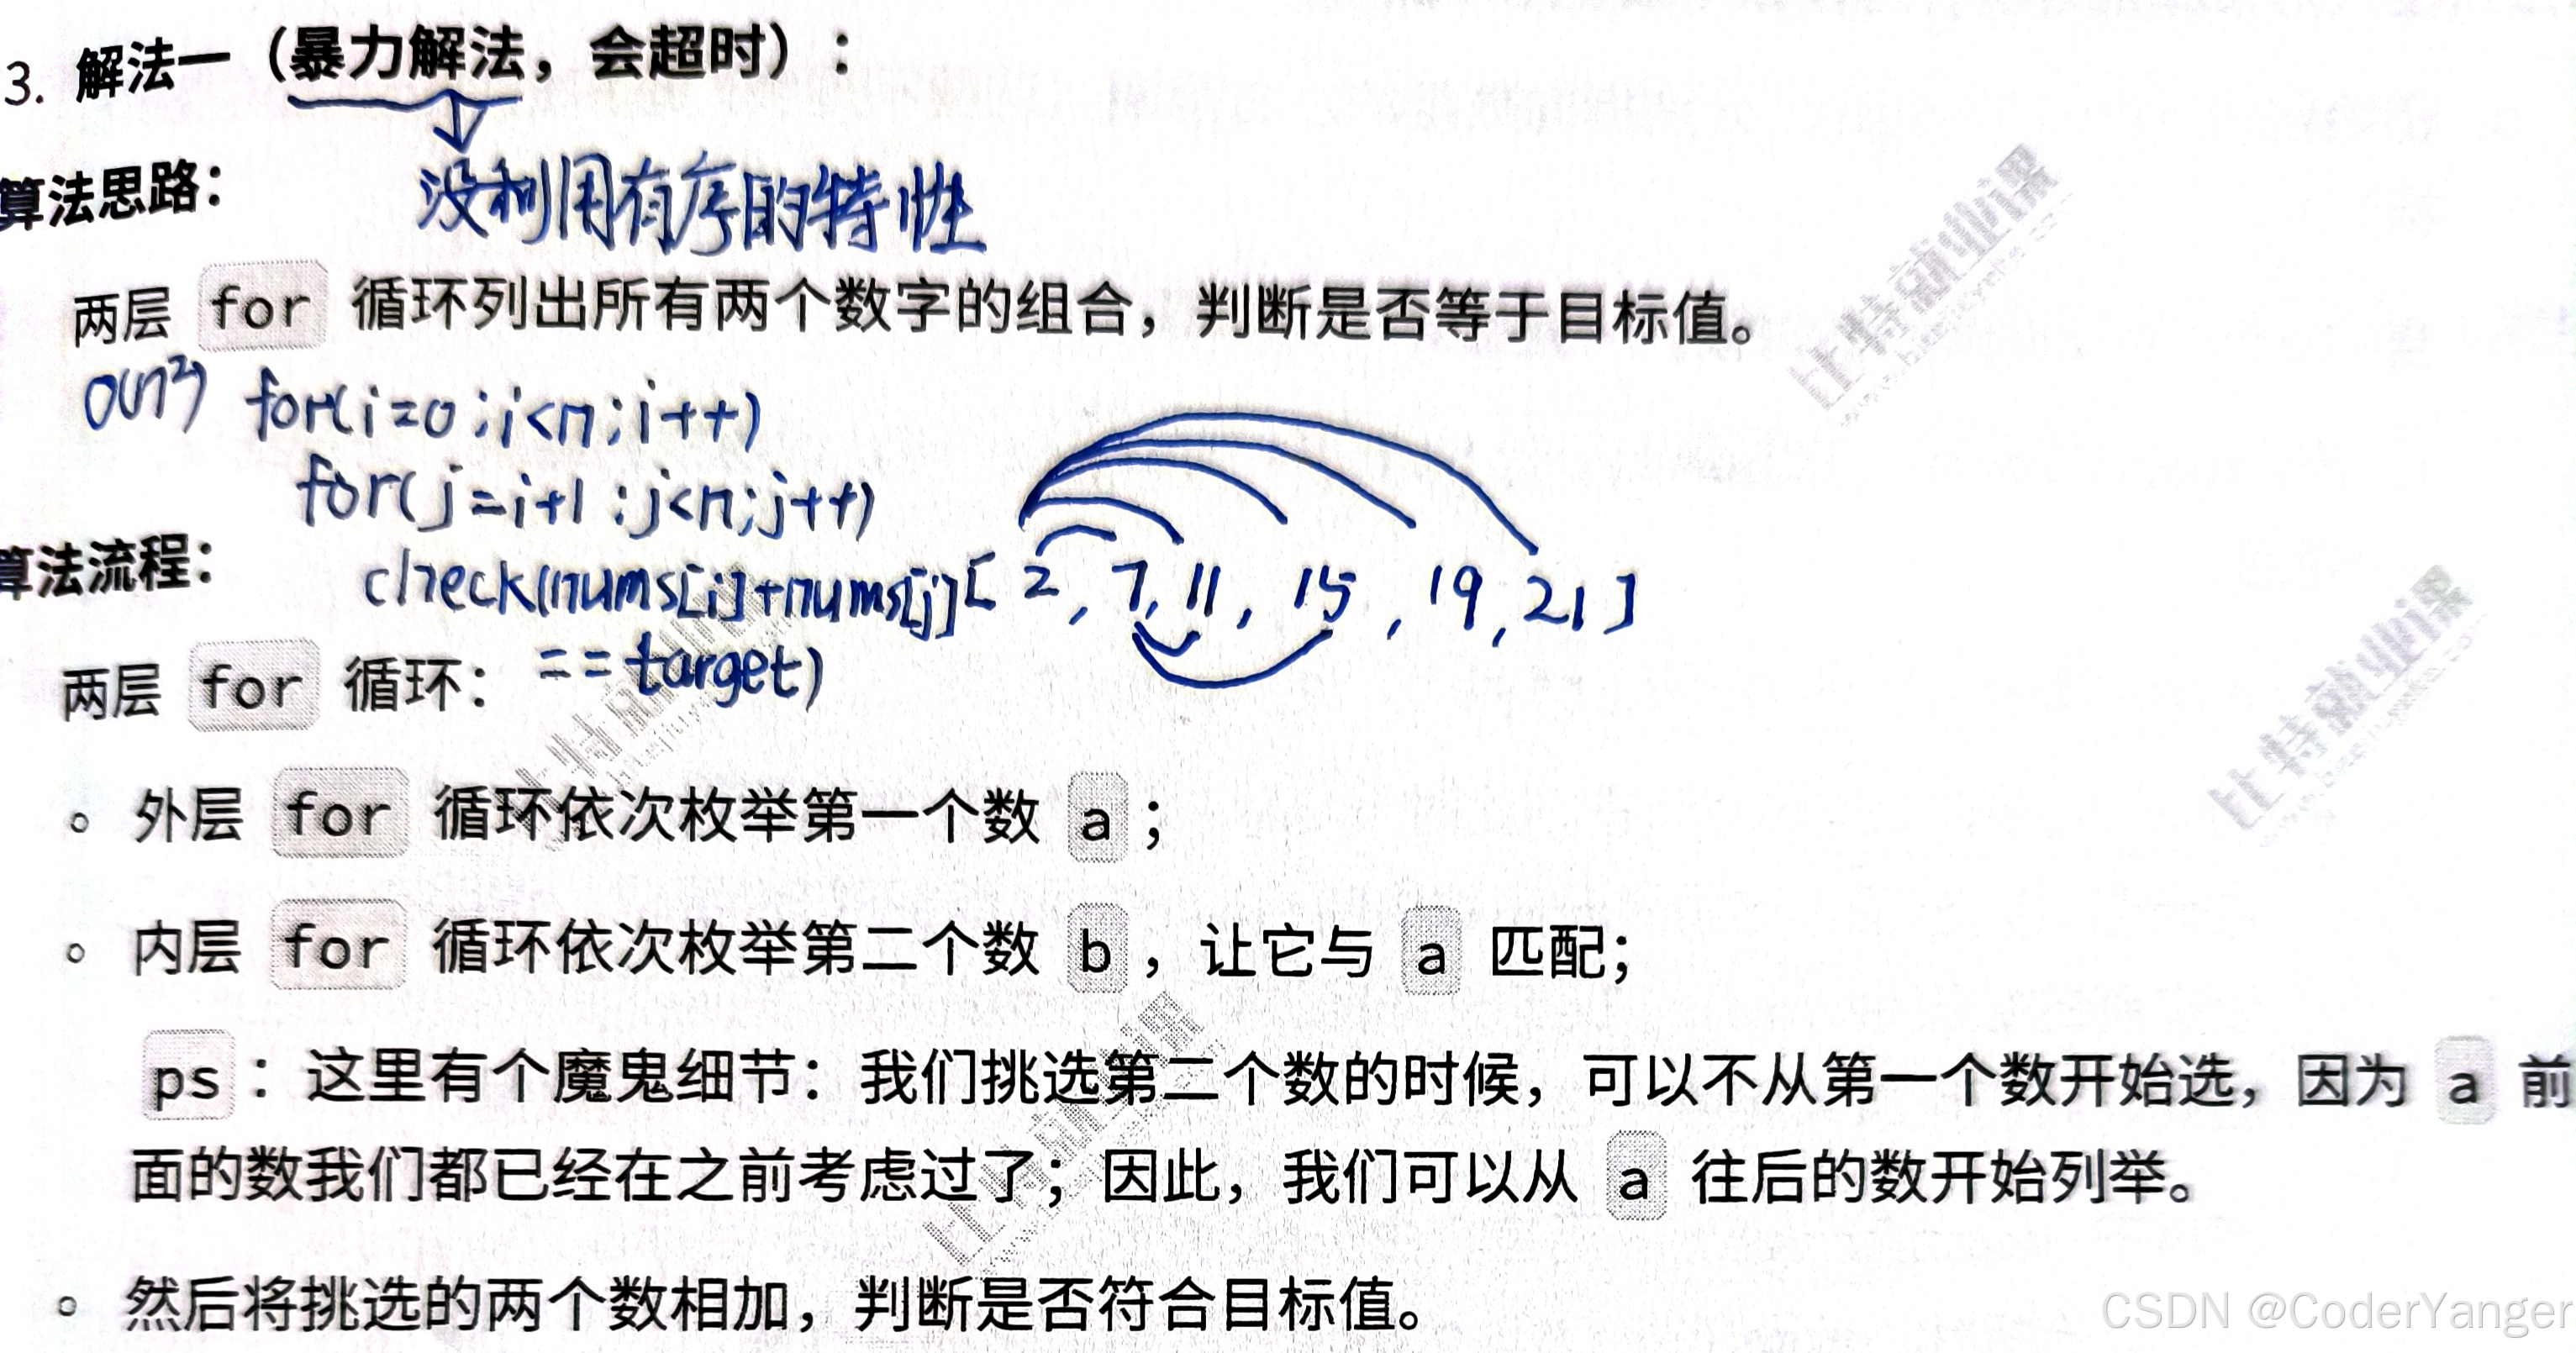 3. 解法一（暴力解法，会超时）：
没利用有序的特性
算法思路：
两层 for 循环列出所有两个数字的组合，判断是否等于目标值。
O(n²) for(i=0;i<n;i++)
for(j=i+1;j<n;j++)
算法流程：
check(nums[i]+nums[j] [2, 7, 11, 15, 19, 21]
== target)
两层 for 循环：
◦ 外层 for 循环依次枚举第一个数 a ；
◦ 内层 for 循环依次枚举第二个数 b ，让它与 a 匹配；
ps ：这里有个魔鬼细节：我们挑选第二个数的时候，可以不从第一个数开始选，因为 a 前
面的数我们都已经在之前考虑过了；因此，我们可以从 a 往后的数开始列举。
◦ 然后将挑选的两个数相加，判断是否符合目标值。
比特就业课
比特就业课
比特就业课
比特就业课
CSDN @CoderYanger